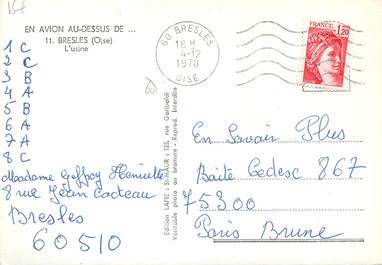 EN AVION AU-DESSUS DE ...
11. BRESLES (Oise)
L'usine
1 C
2 C
3 B
4 A
5 B
6 A
7 A
8 C
Madame Geffroy Henriette
8 rue Jean Cocteau
Bresles
60510
Edition LAPIE - St-MAUR - 125, rue Garibaldi
Véritable photo au bromure - Reprod. interdite
60 BRESLES
18 H
4-12
1978
OISE
FRANCE
1,20
En Savoir Plus
Boite Cedesc 867
75300
Paris Brune